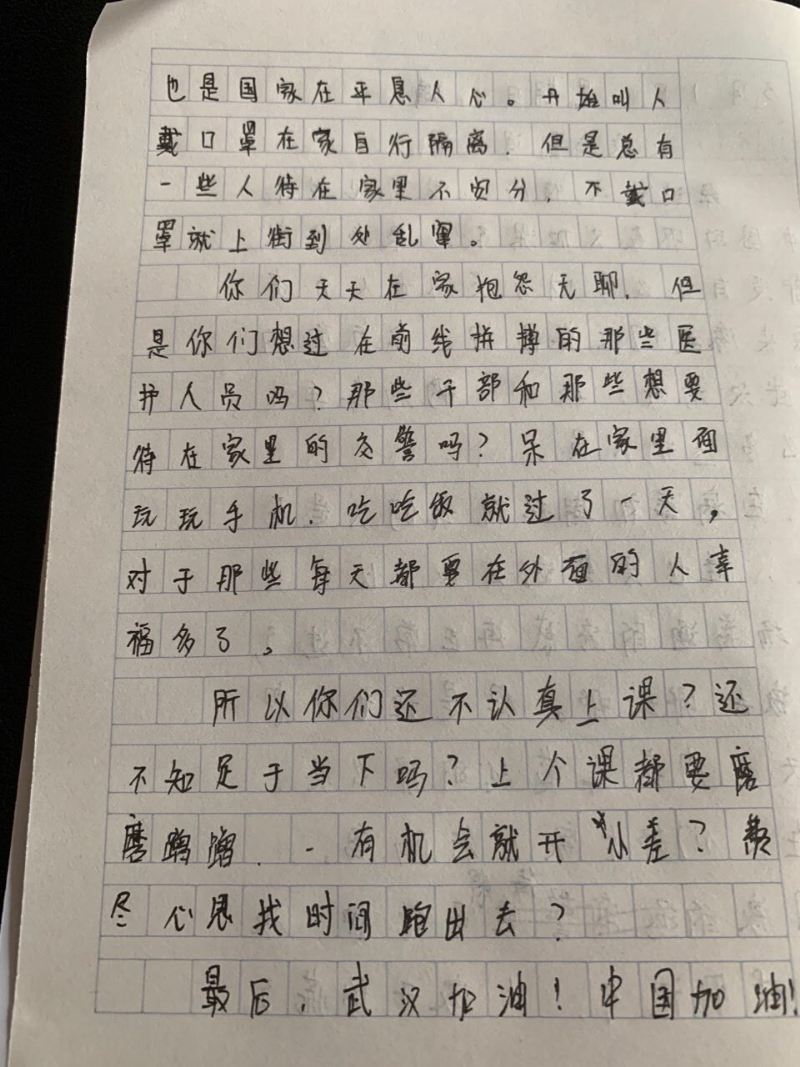 也是国家在平息人心。升雄叫人
戴口罩在家自行隔离，但是总有
一些人待在家里不安分，不戴口
罩就上街到处乱窜。
你们天天在家抱怨无聊，但
是你们想过在前线拼搏的那些医
护人员吗？那些干部和那些想要
待在家里的交警吗？呆在家里面
玩玩手机，吃吃饭就过了一天，
对于那些每天都要在外面的人幸
福多了。
所以你们还不认真上课？还
不知足于当下吗？上个课都要磨
磨蹭蹭，一有机会就开小差？费
尽心思找时间跑出去？
最后，武汉加油！中国加油！